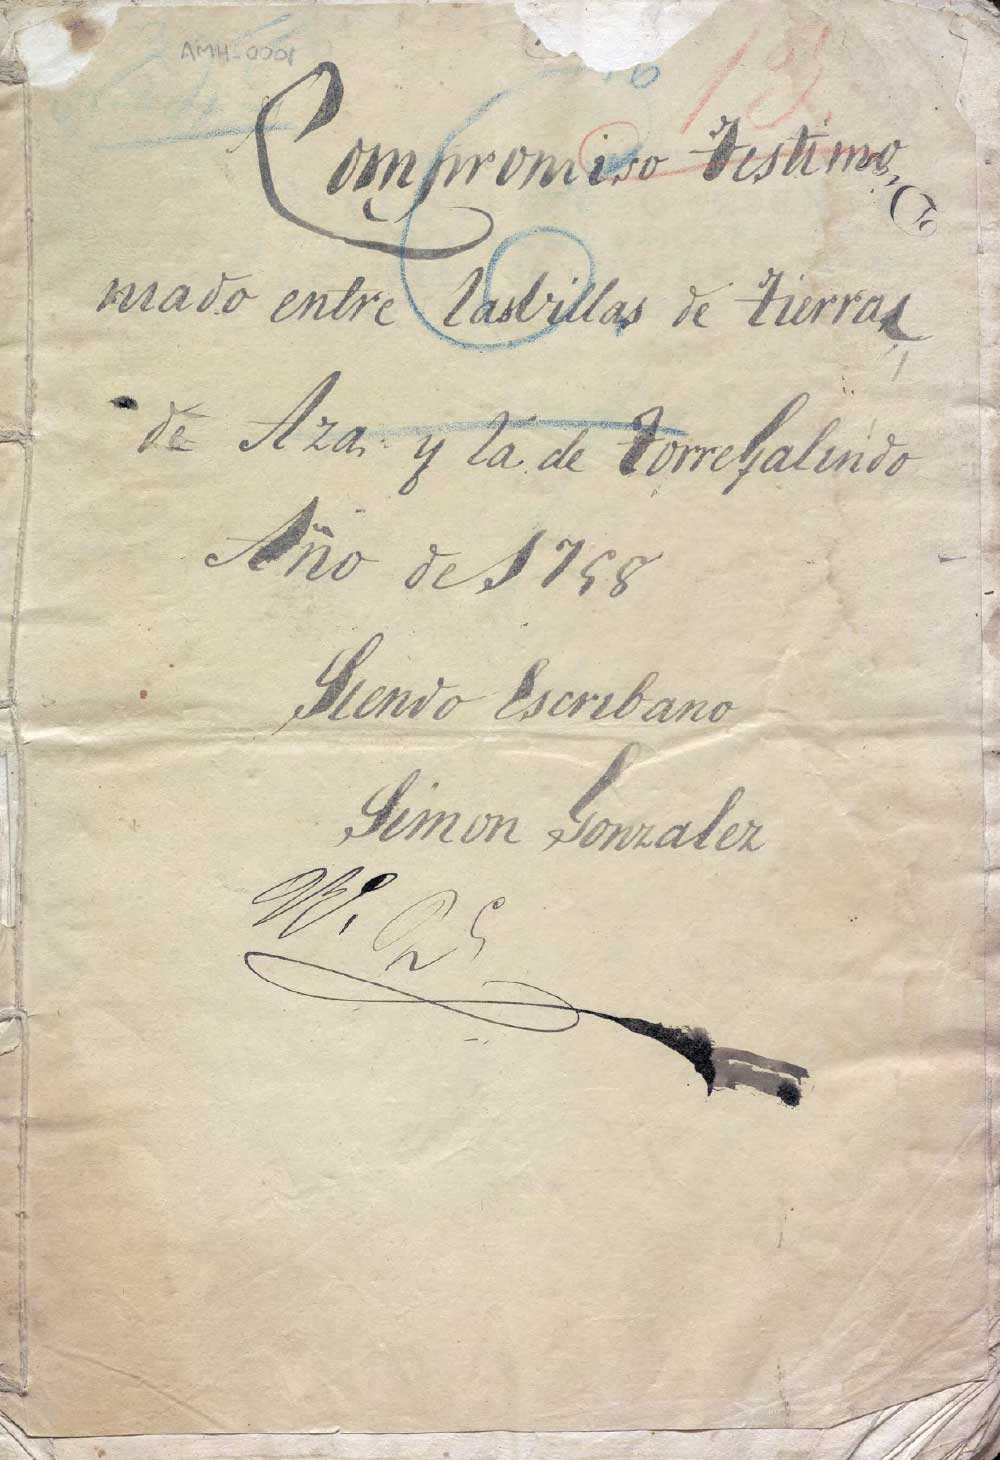 AMH-0001
13.
Compromiso Testimo
niado entre las Villas de Tierra
de Aza y la de TorreGalindo
Año de 1758
Siendo Escribano
Simon Gonzalez
Nº. 25